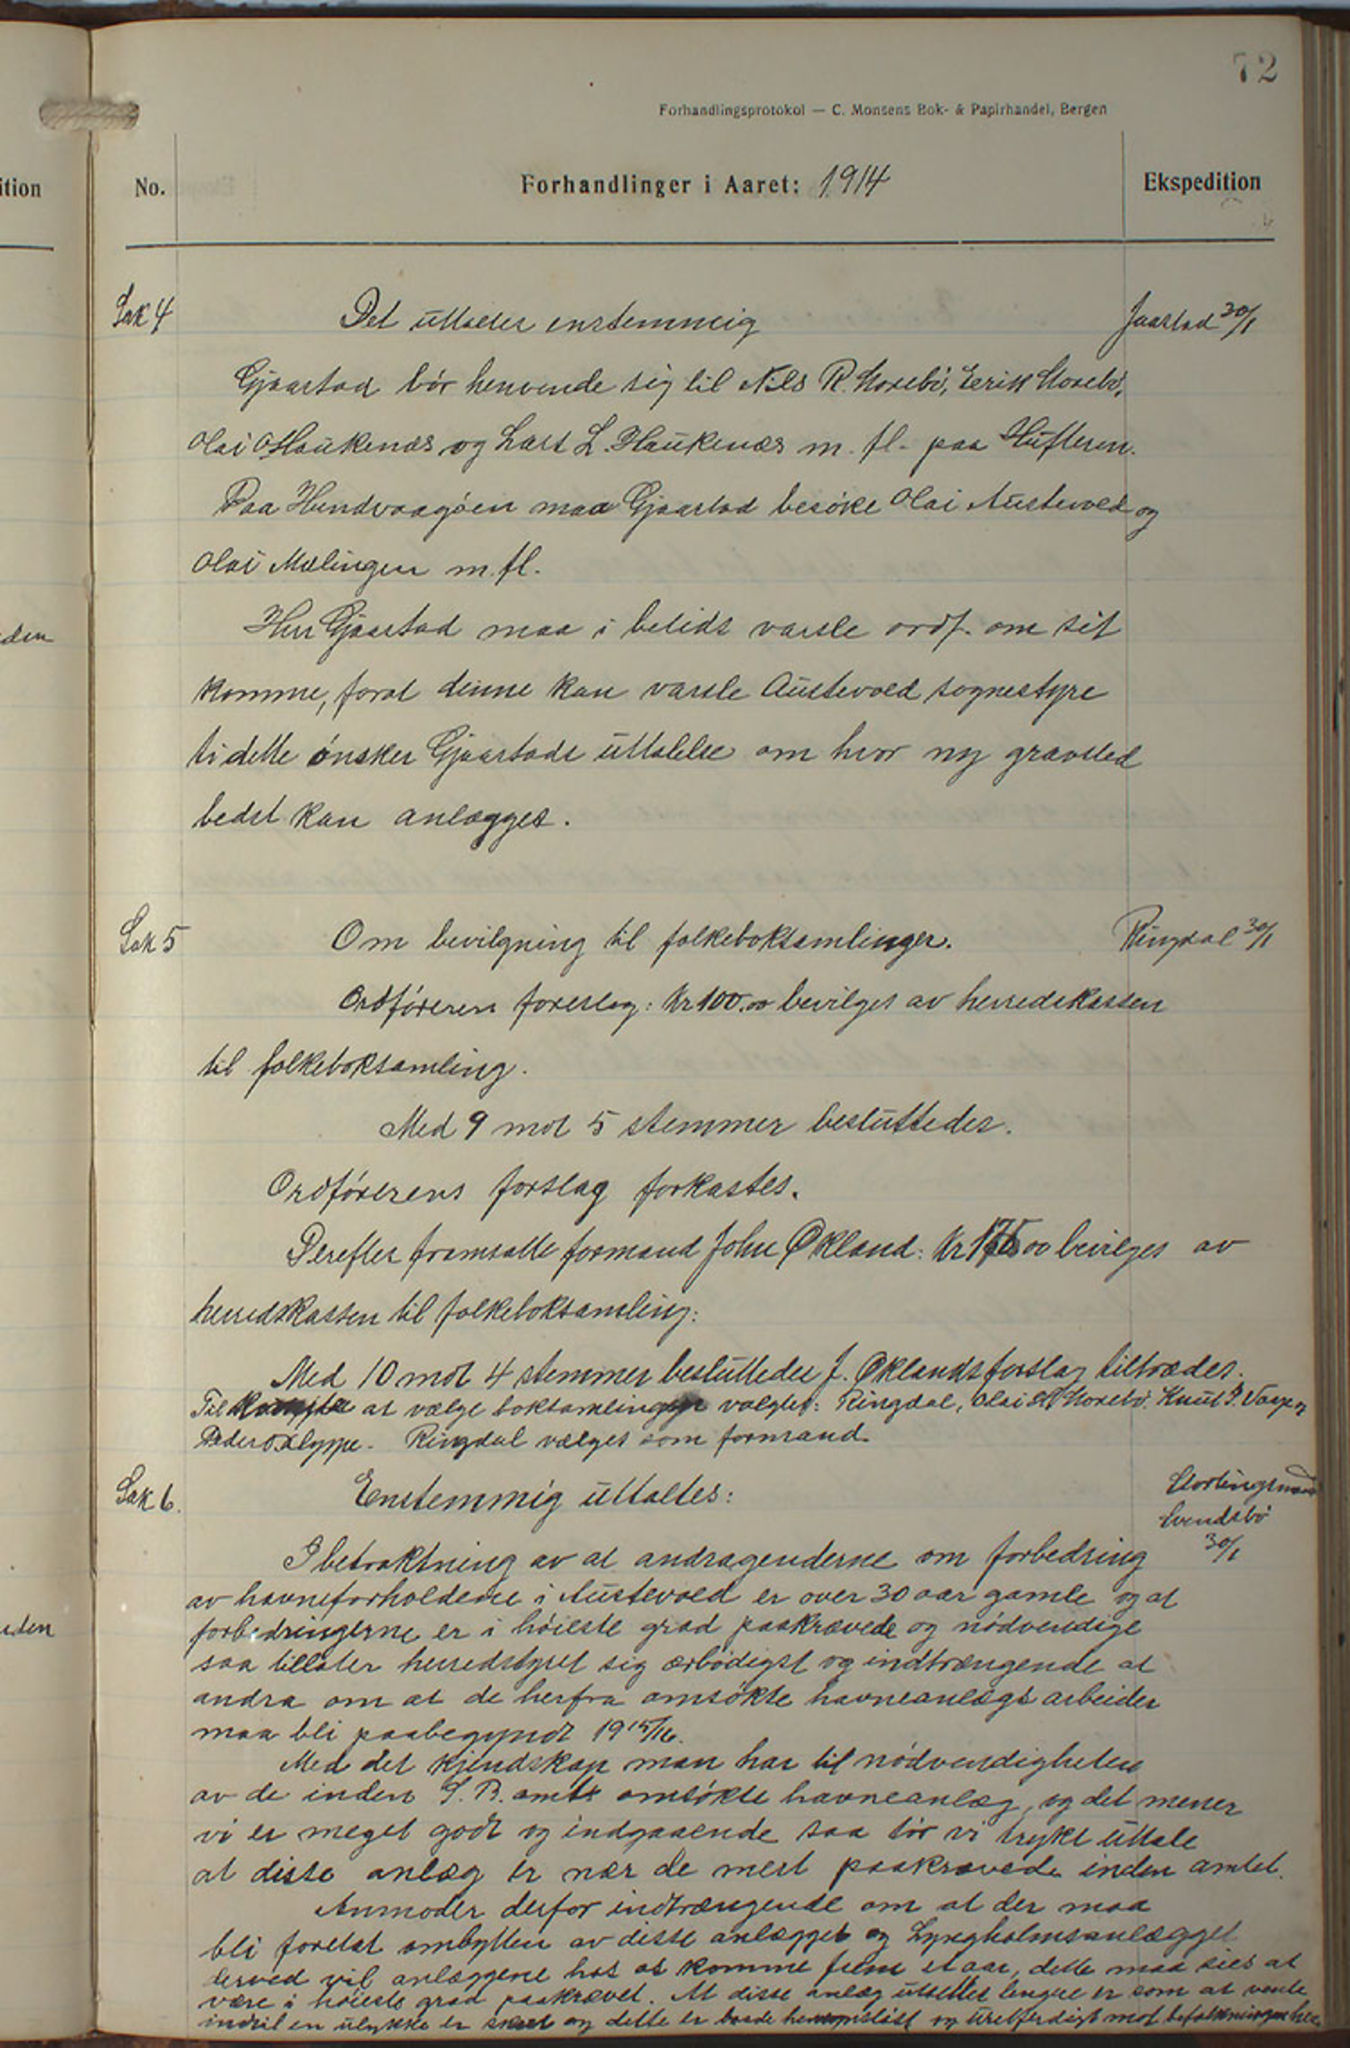 72
Forhandlingsprotokol — C. Monsens Bok- & Papirhandel, Bergen
ition
No.
Forhandlinger i Aaret: 1914
Ekspedition
Sak 4
Det uttales enstemmig
Jaastad 30/1
Gjaastad bör henvende sig til Nils R. Storebö, Eerik Storebö,
Olai O Haukenæs og Lars L. Haukenæs m. fl. paa Hufteren.
Paa Hundvaagöen maa Gjaastad besöke Olai Austevold og
Olai Mælingen m. fl.
Herr Gjaastad maa i betids varsle ordf. om sit
komme, forat denne kan varsle Austevold sognestyre
ti dette önsker Gjaastads uttalelse om hvor ny gravsted
bedst kan anlægges.
Sak 5
Om bevilgning til folkeboksamlinger.
Ringdal 30/1
Ordföreren foreslog: Kr 100.00 bevilges av herredskassen
til folkeboksamling.
Med 9 mot 5 stemmer besluttedes.
Ordförerens forslag forkastes.
Derefter fremsatte formand John Økland: Kr 175 00 bevilges av
herredskassen til folkeboksamling:
Med 10 mot 4 stemmer besluttedes J. Øklands forslag tiltrædes.
Til komite at vælge boksamlinger valgtes: Ringdal, Olai Storebö, Knut J. Vaage og
Peder O. Alyppe. Ringdal vælges som formand.
Sak 6.
Enstemmig uttaltes:
Stortingsmand
Svendsbö
30/1
I betraktning av at andragenderne om forbedring
av havneforholdene i Austevold er over 30 aar gamle og at
forbedringerne er i höieste grad paakrævede og nödvendige
saa tillater herredstyret sig ærbödigst og indtrængende at
andra om at de herfra omsökte havneanlægs arbeider
maa bli paabegyndt 1915/16.
Med det kjendskap man har til nödvendigheten
av de inden S. B. amt omsökte havneanlæg, og det mener
vi er meget godt og indgaaende saa tör vi trykt uttale
at disse anlæg er nær de mest paakrævede inden amtet.
Anmoder derfor indtrængende om at der maa
bli foretat ombytten av disse anlægget og Lyngholmsanlægget
derved vil anlæggene hos os komme frem et aar, dette maa sies at
være i höieste grad paakrævet. At disse anlæg utsettes lengre er som at vente
indtil en ulykke er skeet og dette er baade hensynslöst og uretferdigt mot befolkningen her.